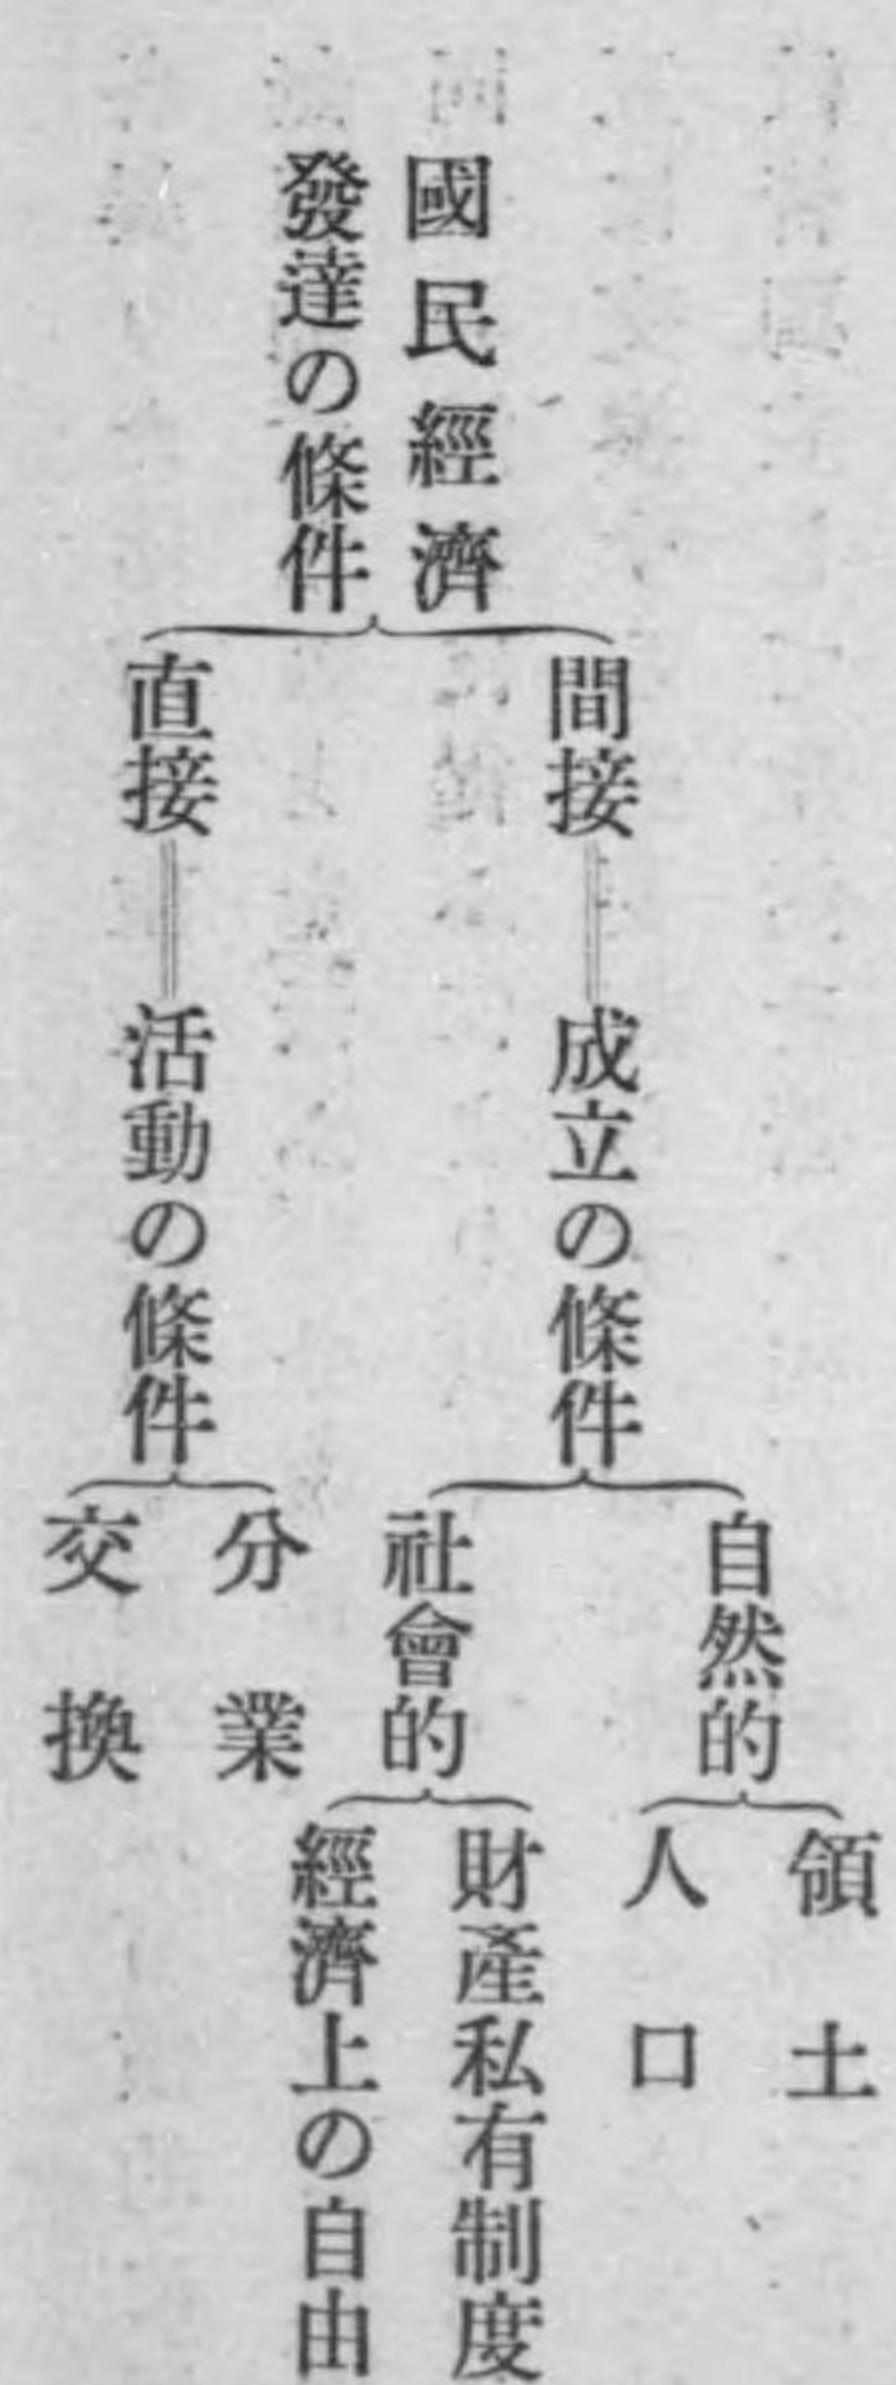 國民經濟
發達の條件
間接
成立の條件
自然的
領土
人口
社會的
財產私有制度
經濟上の自由
直接
活動の條件
分業
交換